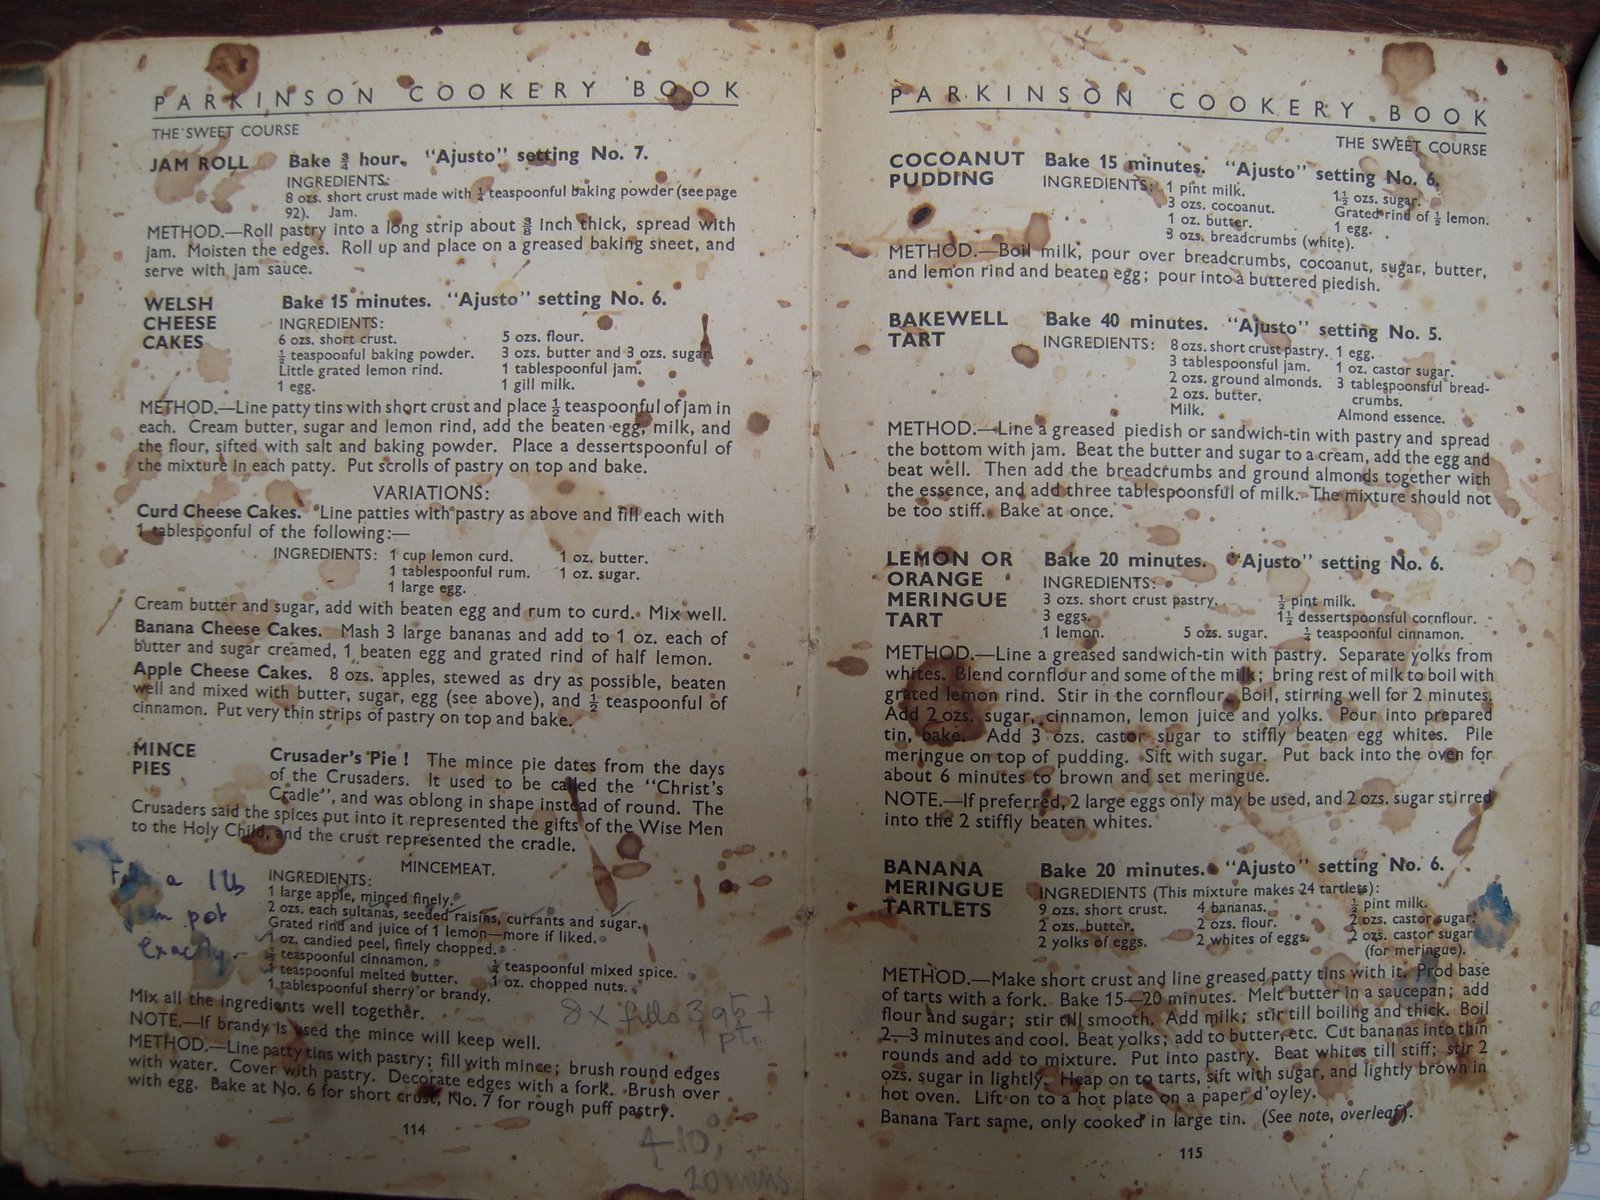 PARKINSON COOKERY BOOK
THE SWEET COURSE
JAM ROLL Bake ¾ hour. "Ajusto" setting No. 7.
INGREDIENTS:
8 ozs. short crust made with ¼ teaspoonful baking powder (see page
92). Jam.
METHOD.—Roll pastry into a long strip about ⅜ inch thick, spread with
jam. Moisten the edges. Roll up and place on a greased baking sheet, and
serve with jam sauce.
WELSH CHEESE CAKES Bake 15 minutes. "Ajusto" setting No. 6.
INGREDIENTS:
6 ozs. short crust. 5 ozs. flour.
½ teaspoonful baking powder. 3 ozs. butter and 3 ozs. sugar.
Little grated lemon rind. 1 tablespoonful jam.
1 egg. 1 gill milk.
METHOD.—Line patty tins with short crust and place ½ teaspoonful of jam in
each. Cream butter, sugar and lemon rind, add the beaten egg, milk, and
the flour, sifted with salt and baking powder. Place a dessertspoonful of
the mixture in each patty. Put scrolls of pastry on top and bake.
VARIATIONS:
Curd Cheese Cakes. Line patties with pastry as above and fill each with
1 tablespoonful of the following:—
INGREDIENTS: 1 cup lemon curd. 1 oz. butter.
1 tablespoonful rum. 1 oz. sugar.
1 large egg.
Cream butter and sugar, add with beaten egg and rum to curd. Mix well.
Banana Cheese Cakes. Mash 3 large bananas and add to 1 oz. each of
butter and sugar creamed, 1 beaten egg and grated rind of half lemon.
Apple Cheese Cakes. 8 ozs. apples, stewed as dry as possible, beaten
well and mixed with butter, sugar, egg (see above), and ½ teaspoonful of
cinnamon. Put very thin strips of pastry on top and bake.
MINCE PIES Crusader's Pie! The mince pie dates from the days
of the Crusaders. It used to be called the "Christ's
Cradle", and was oblong in shape instead of round. The
Crusaders said the spices put into it represented the gifts of the Wise Men
to the Holy Child, and the crust represented the cradle.
MINCEMEAT.
INGREDIENTS:
1 large apple, minced finely.
2 ozs. each sultanas, seeded raisins, currants and sugar.
Grated rind and juice of 1 lemon—more if liked.
1 oz. candied peel, finely chopped.
½ teaspoonful cinnamon. ½ teaspoonful mixed spice.
1 teaspoonful melted butter. 1 oz. chopped nuts.
1 tablespoonful sherry or brandy.
a 1 lb
pot
exactly.
Mix all the ingredients well together.
8 x fills 3 qts +
1 pt.
NOTE.—If brandy is used the mince will keep well.
METHOD.—Line patty tins with pastry; fill with mince; brush round edges
with water. Cover with pastry. Decorate edges with a fork. Brush over
with egg. Bake at No. 6 for short crust, No. 7 for rough puff pastry.
114
410°
20 mins
PARKINSON COOKERY BOOK
THE SWEET COURSE
COCOANUT PUDDING Bake 15 minutes. "Ajusto" setting No. 6.
INGREDIENTS: 1 pint milk. 1½ ozs. sugar.
3 ozs. cocoanut. Grated rind of ½ lemon.
1 oz. butter. 1 egg.
3 ozs. breadcrumbs (white).
METHOD.—Boil milk, pour over breadcrumbs, cocoanut, sugar, butter,
and lemon rind and beaten egg; pour into a buttered piedish.
BAKEWELL TART Bake 40 minutes. "Ajusto" setting No. 5.
INGREDIENTS: 8 ozs. short crust pastry. 1 egg.
3 tablespoonsful jam. 1 oz. castor sugar.
2 ozs. ground almonds. 3 tablespoonsful bread-
2 ozs. butter. crumbs.
Milk. Almond essence.
METHOD.—Line a greased piedish or sandwich-tin with pastry and spread
the bottom with jam. Beat the butter and sugar to a cream, add the egg and
beat well. Then add the breadcrumbs and ground almonds together with
the essence, and add three tablespoonsful of milk. The mixture should not
be too stiff. Bake at once.
LEMON OR ORANGE MERINGUE TART Bake 20 minutes. "Ajusto" setting No. 6.
INGREDIENTS:
3 ozs. short crust pastry. ½ pint milk.
3 eggs. 1½ dessertspoonsful cornflour.
1 lemon. 5 ozs. sugar. ¼ teaspoonful cinnamon.
METHOD.—Line a greased sandwich-tin with pastry. Separate yolks from
whites. Blend cornflour and some of the milk; bring rest of milk to boil with
grated lemon rind. Stir in the cornflour. Boil, stirring well for 2 minutes.
Add 2 ozs. sugar, cinnamon, lemon juice and yolks. Pour into prepared
tin, bake. Add 3 ozs. castor sugar to stiffly beaten egg whites. Pile
meringue on top of pudding. Sift with sugar. Put back into the oven for
about 6 minutes to brown and set meringue.
NOTE.—If preferred, 2 large eggs only may be used, and 2 ozs. sugar stirred
into the 2 stiffly beaten whites.
BANANA MERINGUE TARTLETS Bake 20 minutes. "Ajusto" setting No. 6.
INGREDIENTS (This mixture makes 24 tartlets):
9 ozs. short crust. 4 bananas. ½ pint milk.
2 ozs. butter. 2 ozs. flour. 2 ozs. castor sugar.
2 yolks of eggs. 2 whites of eggs. 2 ozs. castor sugar
(for meringue).
METHOD.—Make short crust and line greased patty tins with it. Prod base
of tarts with a fork. Bake 15—20 minutes. Melt butter in a saucepan; add
flour and sugar; stir till smooth. Add milk; stir till boiling and thick. Boil
2—3 minutes and cool. Beat yolks; add to butter, etc. Cut bananas into thin
rounds and add to mixture. Put into pastry. Beat whites till stiff; stir 2
ozs. sugar in lightly. Heap on to tarts, sift with sugar, and lightly brown in
hot oven. Lift on to a hot plate on a paper d'oyley.
Banana Tart same, only cooked in large tin. (See note, overleaf).
115